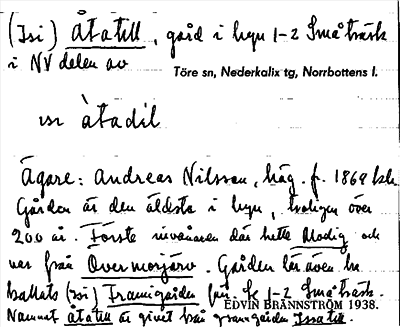 (Isi) åtatill, gård i byn 1-2 Småträsk
i NV delen av
Töre sn, Nederkalix tg, Norrbottens l.
isi àtadil
Ägare: Andreas Nilsson, häg. f. 1869
Gården är den äldsta i byn, troligen över
200 år. Förste invånaren där hette Modig och
var från Övermorjärv. Gården lär även ha
kallats (isi) Framigården på 1-2 Småträsk.
EDVIN BRÄNNSTRÖM 1938.
Namnet åtatill är givet från granngården Issatill.